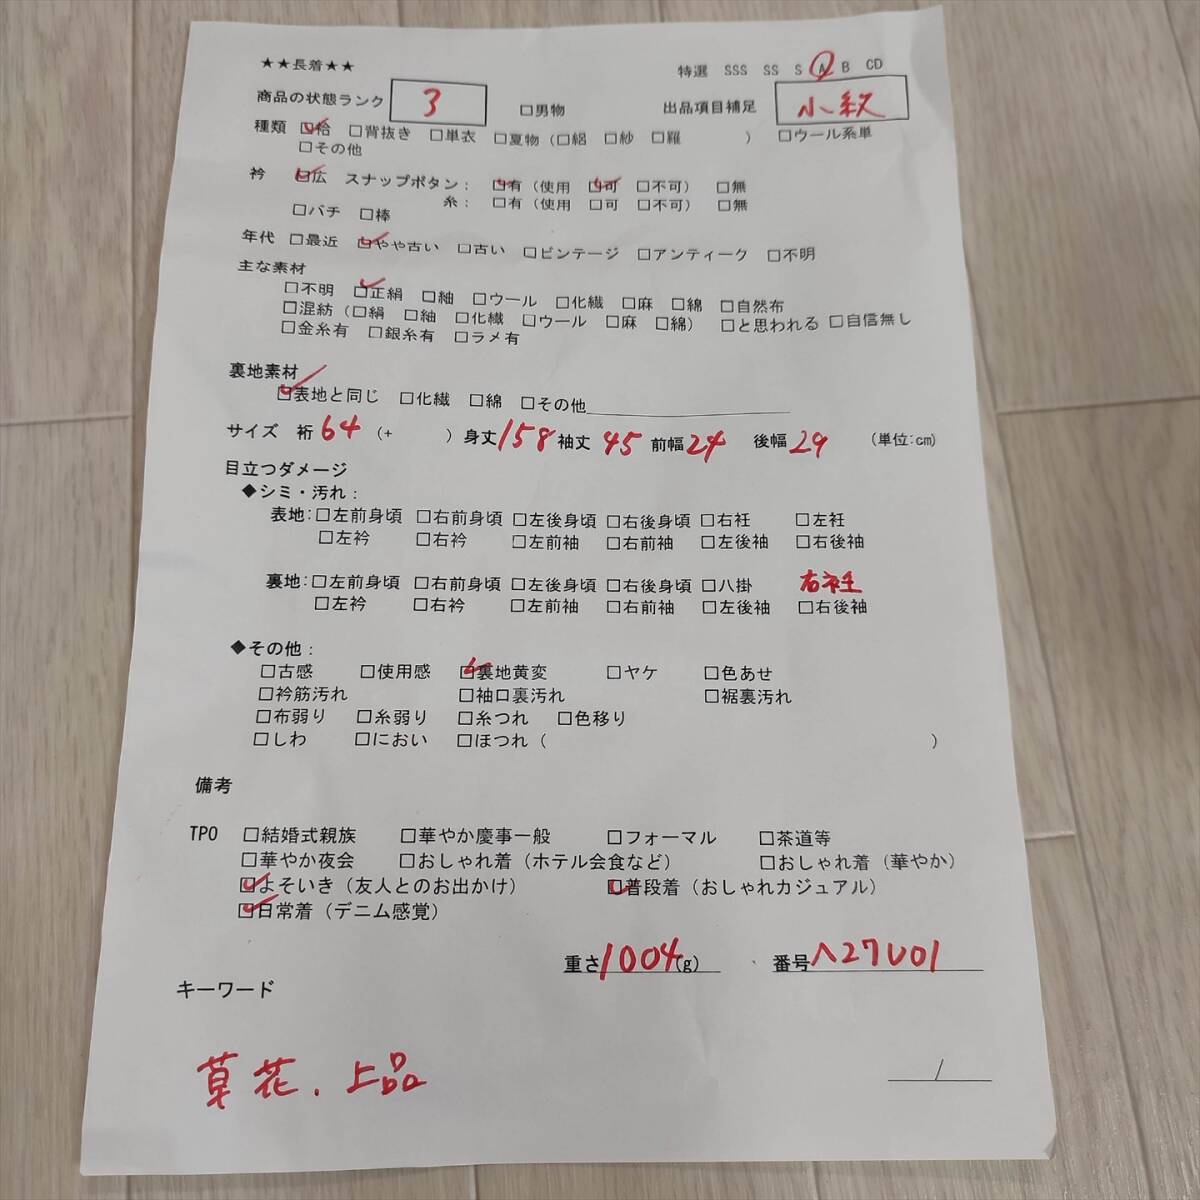 ★★長着★★
特選 SSS SS S A B CD
商品の状態ランク 3 □男物 出品項目補足 小紋
種類 □袷 □背抜き □単衣 □夏物(□絽 □紗 □羅 ) □ウール系単
□その他
衿 □広 スナップボタン: □有(使用 □可 □不可) □無
糸: □有(使用 □可 □不可) □無
□バチ □棒
年代 □最近 □やや古い □古い □ビンテージ □アンティーク □不明
主な素材
□不明 □正絹 □紬 □ウール □化繊 □麻 □綿 □自然布
□混紡(□絹 □紬 □化繊 □ウール □麻 □綿) □と思われる □自信無し
□金糸有 □銀糸有 □ラメ有
裏地素材
□表地と同じ □化繊 □綿 □その他
サイズ 裄 64 (+ ) 身丈 158 袖丈 45 前幅 24 後幅 29 (単位:cm)
目立つダメージ
◆シミ・汚れ:
表地:□左前身頃 □右前身頃 □左後身頃 □右後身頃 □右衽 □左衽
□左衿 □右衿 □左前袖 □右前袖 □左後袖 □右後袖
裏地:□左前身頃 □右前身頃 □左後身頃 □右後身頃 □八掛 右衽
□左衿 □右衿 □左前袖 □右前袖 □左後袖 □右後袖
◆その他:
□古感 □使用感 □裏地黄変 □ヤケ □色あせ
□衿筋汚れ □袖口裏汚れ □裾裏汚れ
□布弱り □糸弱り □糸つれ □色移り
□しわ □におい □ほつれ( )
備考
TPO □結婚式親族 □華やか慶事一般 □フォーマル □茶道等
□華やか夜会 □おしゃれ着(ホテル会食など) □おしゃれ着(華やか)
□よそいき(友人とのお出かけ) □普段着(おしゃれカジュアル)
□日常着(デニム感覚)
重さ 1004 (g) 番号 ハ27U01
キーワード
草花、上品
/